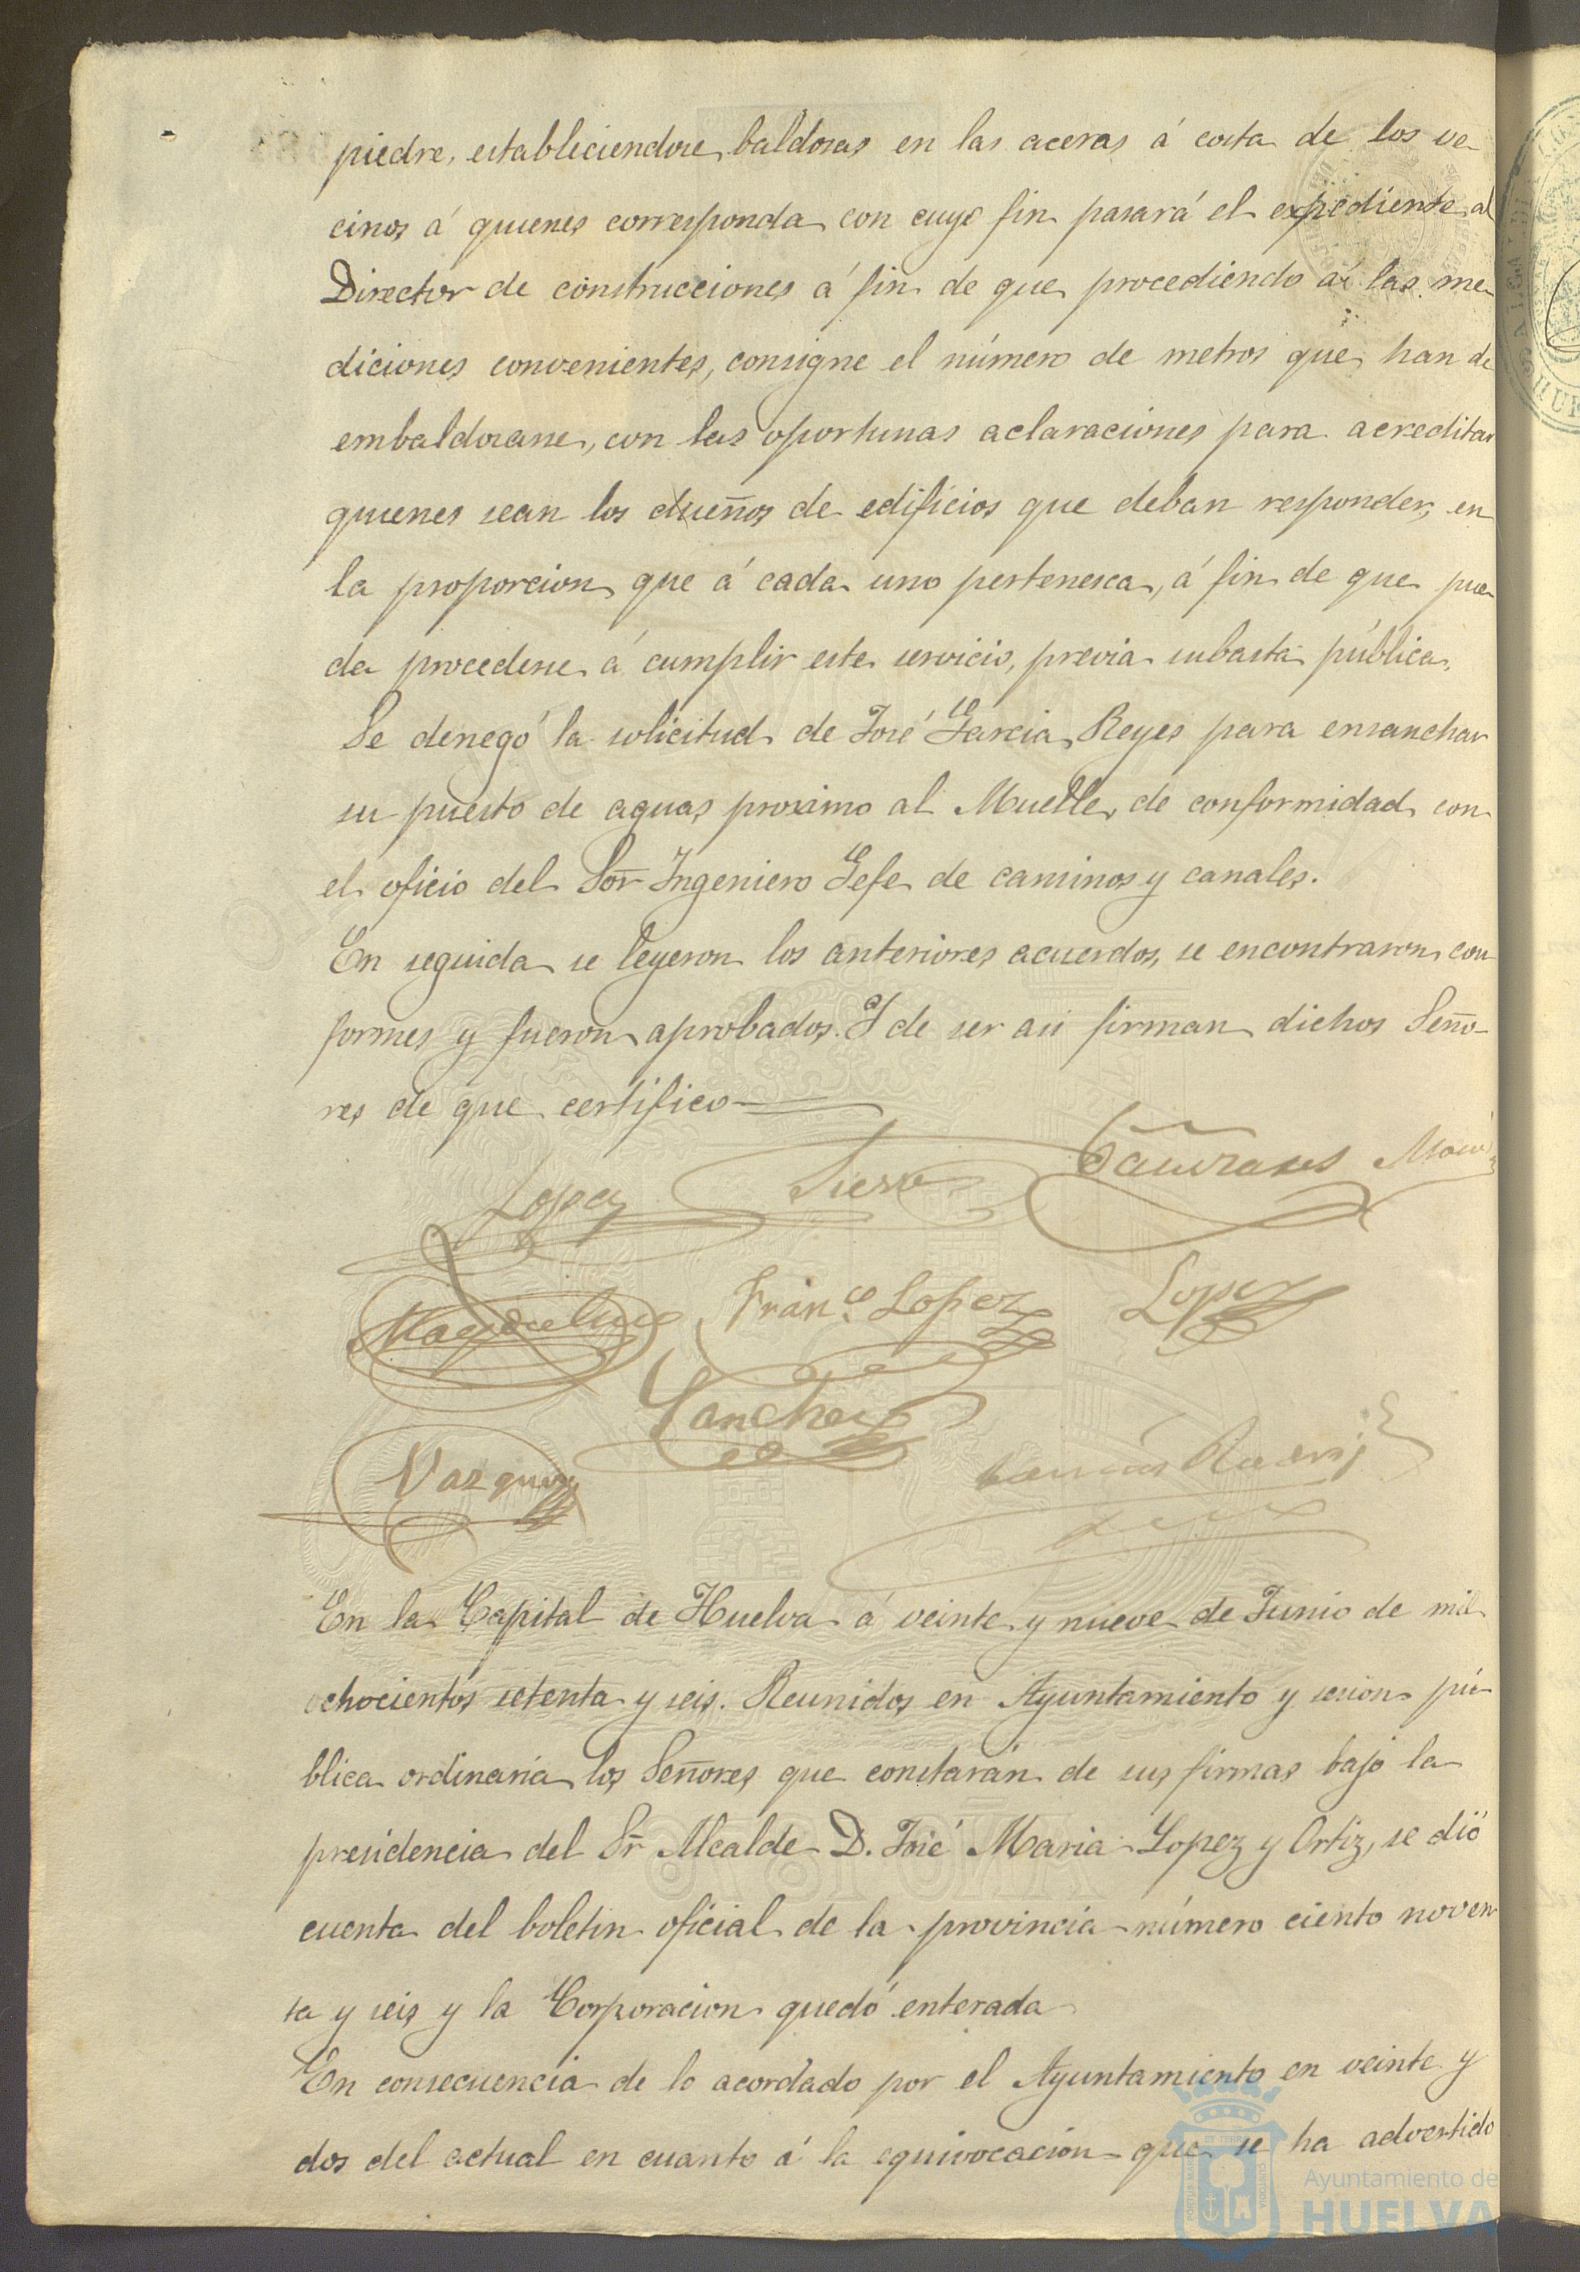 piedre, estableciendose baldosas en las aceras á costa de los ve-
cinos á quienes corresponda con cuyo fin pasará el expediente al
Director de construcciones á fin de que procediendo á las me-
diciones convenientes, consigne el número de metros que han de
embaldosarse, con las oportunas aclaraciones para acreditar
quienes sean los dueños de edificios que deban responder, en
la proporcion que á cada uno pertenesca, á fin de que pue-
da procederse á cumplir este servicio, previa subasta pública.
Se denegó la solicitud de José Garcia Reyes para ensanchar
su puesto de aguas proximo al Muelle, de conformidad con
el oficio del Sor Ingeniero Gefe de caminos y canales.
En seguida se leyeron los anteriores acuerdos, se encontraron con-
formes y fueron aprobados. Y de ser asi firman dichos Seño-
res de que certifico
Lopez Sierra
Franco Lopez Lopez
Sanchez
Vazquez
En la Capital de Huelva á veinte y nueve de Junio de mil
ochocientos setenta y seis. Reunidos en Ayuntamiento y sesion pú-
blica ordinaria los Señores que constarán de sus firmas bajo la
presidencia del Sr Alcalde D. José Maria Lopez y Ortiz, se dió
cuenta del boletin oficial de la provincia número ciento noven-
ta y seis y la Corporacion quedó enterada
En consecuencia de lo acordado por el Ayuntamiento en veinte y
dos del actual en cuanto á la equivocacion que se ha advertido
Ayuntamiento de
HUELVA